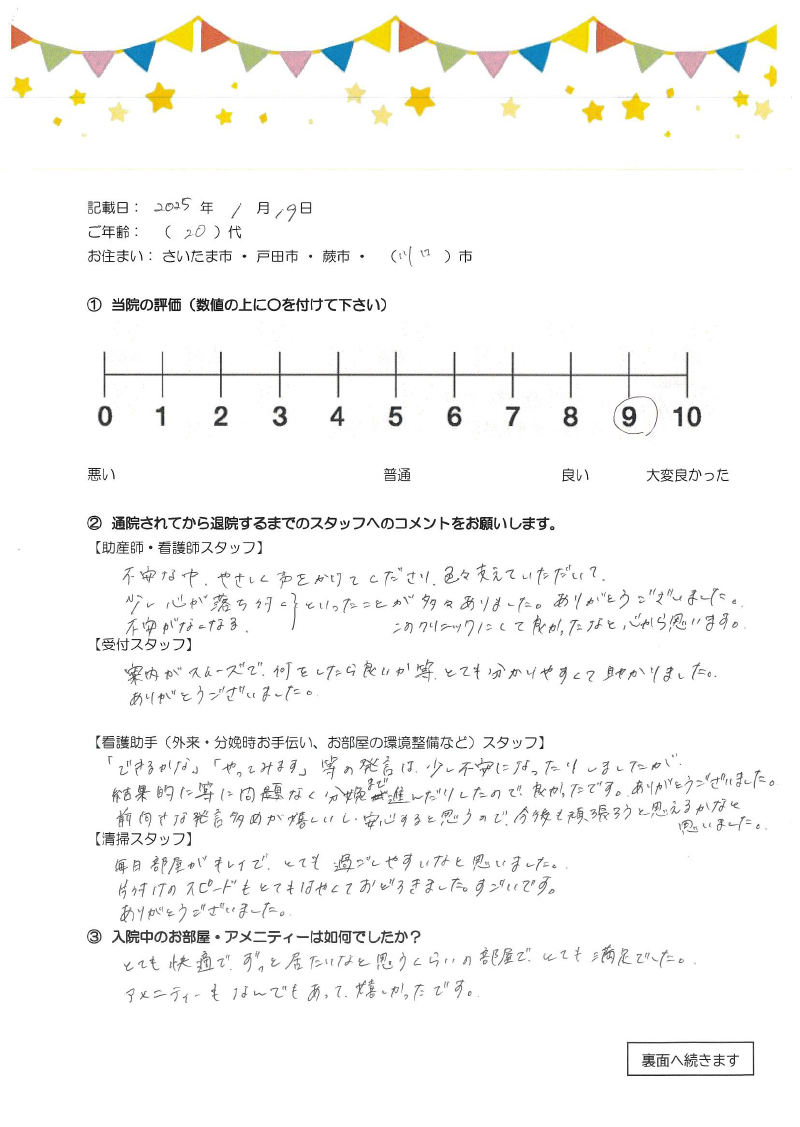 記載日： 2025 年 1 月 19 日
ご年齢： （ 20 ）代
お住まい： さいたま市 ・ 戸田市 ・ 蕨市 ・ （川口 ）市
① 当院の評価（数値の上に〇を付けて下さい）
0 1 2 3 4 5 6 7 8 9 10
悪い 普通 良い 大変良かった
② 通院されてから退院するまでのスタッフへのコメントをお願いします。
【助産師・看護師スタッフ】
不安な中、やさしく声をかけてくださり、色々支えていただいて、
少し心が落ち付く といったことが多々ありました。ありがとうございました。
不安がなくなる。 このクリニックにして良かったなと心から思います。
【受付スタッフ】
案内がスムーズで、何をしたら良いか等、とても分かりやすくて助かりました。
ありがとうございました。
【看護助手（外来・分娩時お手伝い、お部屋の環境整備など）スタッフ】
「できるかな」「やってみます」等の発言は、少し不安になったりしましたが、
結果的に等に問題なく分娩まで進んだりしたので、良かったです。ありがとうございました。
前向きな発言多めが嬉しいし、安心すると思うので、今後も頑張ろうと思えるかなと
思いました。
【清掃スタッフ】
毎日部屋がキレイで、とても過ごしやすいなと思いました。
片付けのスピードもとてもはやくておどろきました。すごいです。
ありがとうございました。
③ 入院中のお部屋・アメニティーは如何でしたか？
とても快適で、ずっと居たいなと思うくらいの部屋で、とても満足でした。
アメニティーもなんでもあって、嬉しかったです。
裏面へ続きます